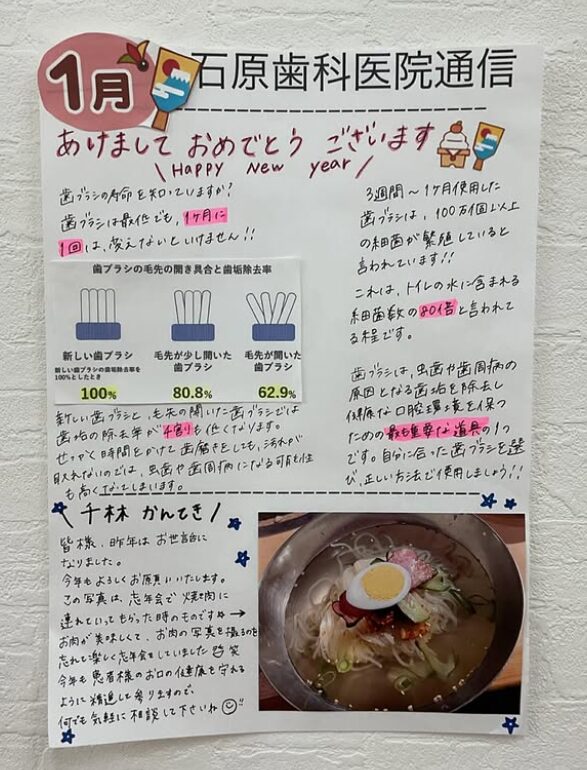 1月
石原歯科医院通信
あけまして おめでとう ございます
\ Happy New year /
歯ブラシの寿命を知っていますか?
歯ブラシは最低でも、1ヶ月に
1回は、変えないといけません!!
歯ブラシの毛先の開き具合と歯垢除去率
新しい歯ブラシ
新しい歯ブラシの歯垢除去率を
100%としたとき
100%
毛先が少し開いた
歯ブラシ
80.8%
毛先が開いた
歯ブラシ
62.9%
新しい歯ブラシと、毛先の開いた歯ブラシでは
歯垢の除去率が4割りも低くなります。
せっかく時間をかけて歯磨きをしても、汚れが
取れないのでは、虫歯や歯周病になる可能性
も高くなってしまいます。
3週間〜1ヶ月使用した
歯ブラシは、100万個以上
の細菌が繁殖していると
言われています!!
これは、トイレの水に含まれる
細菌数の80倍と言われて
る程です。
歯ブラシは、虫歯や歯周病の
原因となる歯垢を除去し
健康な口腔環境を保つ
ための最も重要な道具の1つ
です。自分に合った歯ブラシを選
び、正しい方法で使用しましょう!!
\ 千林 かんてき /
皆様、昨年はお世話に
なりました。
今年もよろしくお願いいたします。
この写真は、忘年会で焼肉に
連れていってもらった時のものです☆→
お肉が美味しくて、お肉の写真を撮るのを
忘れて楽しく忘年会をしていました 笑
今年も患者様のお口の健康を守れる
ように精進して参りますので、
何でも気軽に相談して下さいね